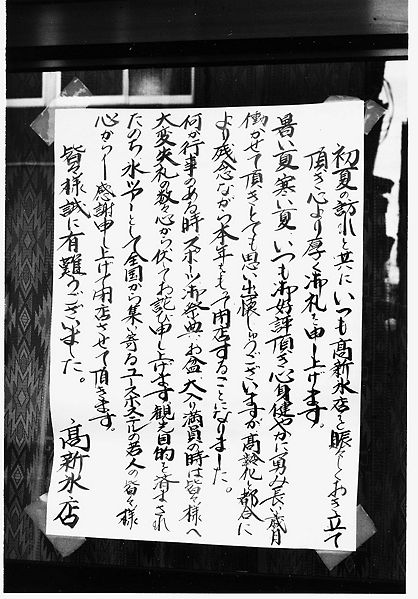 初夏の訪れと共にいつも高新氷店を賑々しくお引き立て
頂き心より厚く御礼を申し上げます。
暑い夏、寒い夏、いつも御好評頂き心身健やかに勇み長い歳月
働かせて頂きとても思い出懐しゅうございますが高齢化の都合に
より残念ながら本年をもって閉店することになりました。
何か行事のある時、スポーツ、御祭典、お盆、大入り満員の時は皆々様へ
大変失礼の数々心から伏てお詫び申し上げます。観光目的を済まされ
たのち氷ツアーとして全国から集い寄るユースホステルの若人の皆々様
心から感謝申し上げて閉店させて頂きます。
皆々様誠に有難うございました。
高新氷店